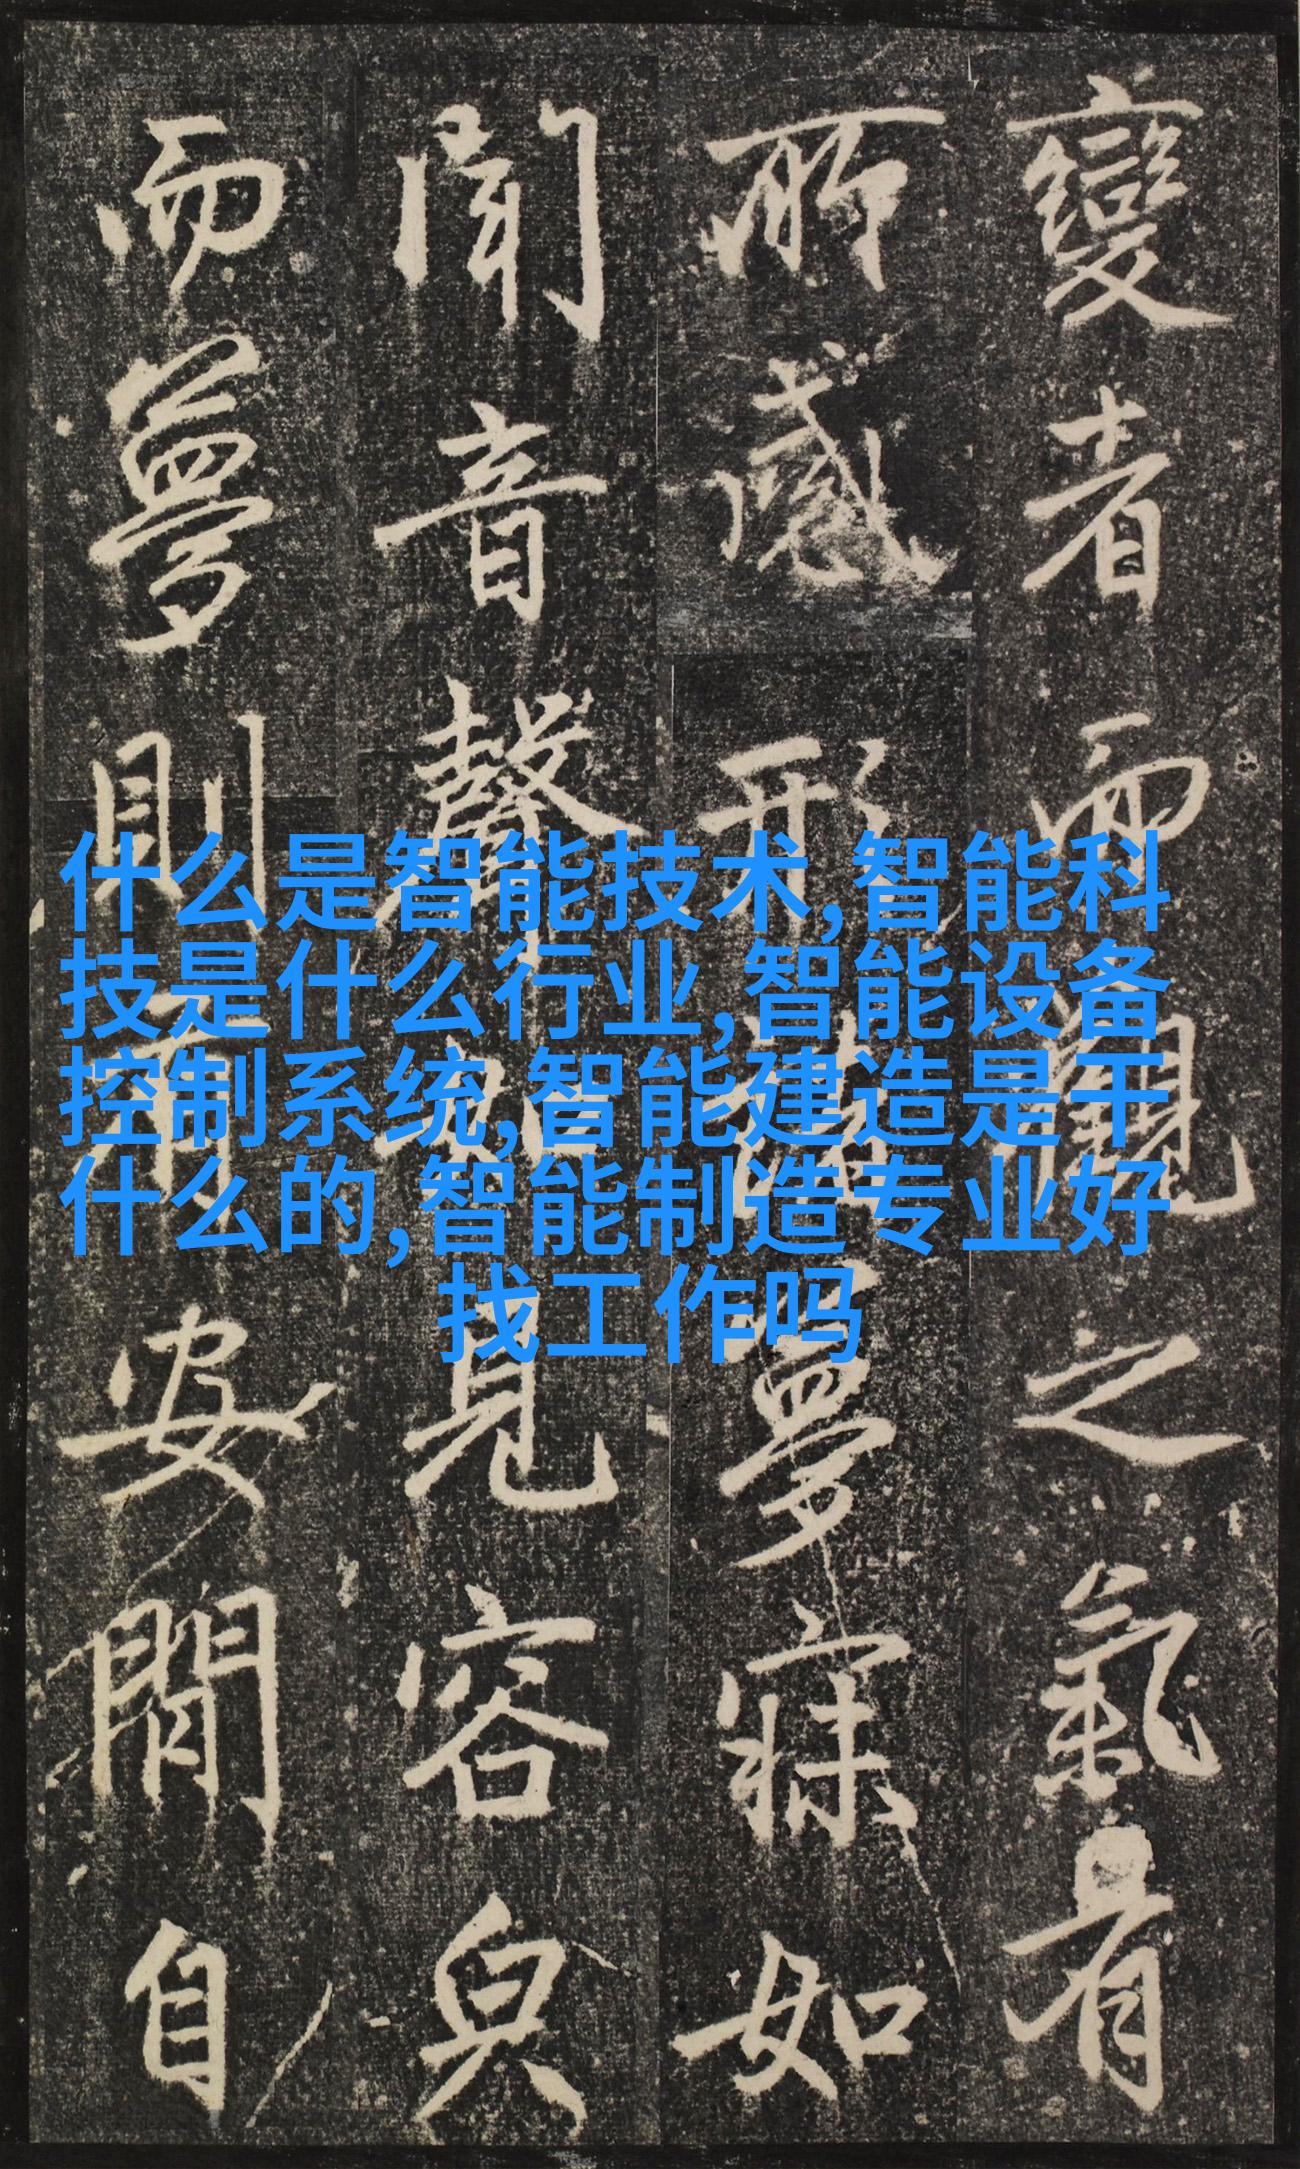 變者而觀之氣有
所感形夢寐如
聞音聲見容皃
而夢則安閒自
什么是智能技术,智能科
技是什么行业,智能设备
控制系统,智能建造是干
什么的,智能制造专业好
找工作吗